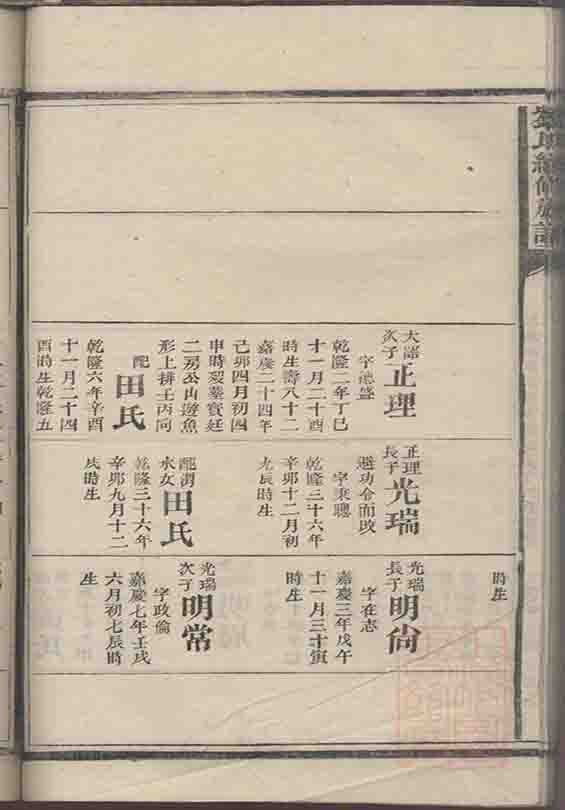 氏續修族譜
大謡
次子
正理
字德盛
乾隆二年丁巳
十一月二十酉
時生壽八十二
嘉慶二十四年
己卯四月初四
申時歿墓寶廷
二房公山遊魚
形上排壬丙向
配
田氏
乾隆六年辛酉
十一月二十四
酉時生乾隆五
正理
長子
光瑞
避功令而改
字秉聰
乾隆三十六年
辛卯十二月初
九辰時生
配渭
水女
田氏
乾隆三十六年
辛卯九月十二
戌時生
時生
光瑞
長子
明尙
字在志
嘉慶三年戊午
十一月三十寅
時生
光瑞
次子
明常
字政倫
嘉慶七年壬戌
六月初七辰時
生